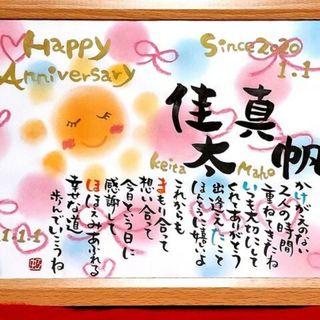 Happy
Anniversary
Since2020
1.1
真帆
佳太
Keita
Maho
かけがえのない
2人の時間
重ねてきたね
いつも大切にして
くれてありがとう
出逢えたこと
ほんとうに嬉しいよ
これからも
まもり合って
想い合って
今日という日に
感謝して
ほほえみあふれる
幸せな道
歩んでいこうね
1.1.1